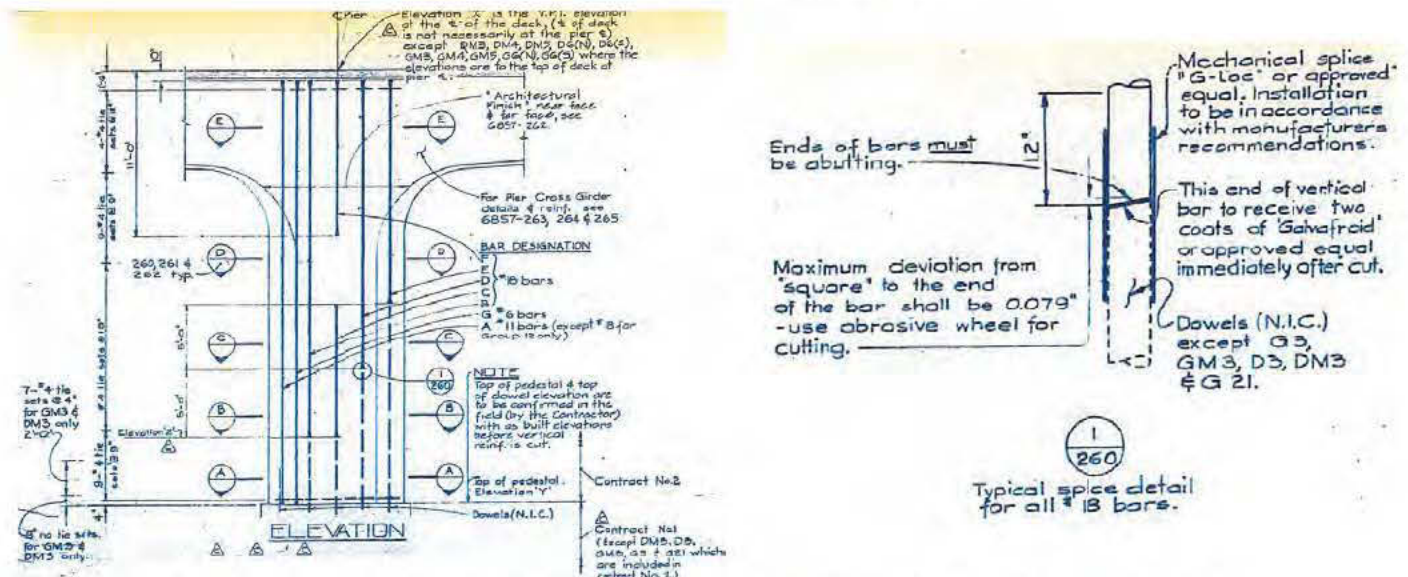 Pier
Elevation 'X' is the V.P.I. elevation
at the ℄ of the deck, (℄ of deck
is not necessarily at the pier ℄)
except DM3, DM4, DM5, D6(N), D6(S),
GM3, GM4, GM5, G6(N), G6(S) where the
elevations are to the top of deck at
pier ℄.
"Architectural
Finish" near face
& far face, see
6857-262.
E
E
11'-0"
For Pier Cross Girder
details & reinf. see
6857-263, 264 & 265
D
D
260, 261 &
262 typ.
BAR DESIGNATION
F
E
D #18 bars
C
B
G #6 bars
A #11 bars (except #8 for
Group 12 only)
C
C
5'-0"
5'-0"
1
260
NOTE
Top of pedestal & top
of dowel elevation are
to be confirmed in the
field (by the Contractor)
with as built elevations
before vertical
reinf. is cut.
7-#4 tie
sets @ 4"
for GM3 &
DM3 only
2'-0"
B
B
Elevation 'Z'
A
A
Top of pedestal
Elevation 'Y'
Contract No.2
4"
Dowels (N.I.C.)
8" no tie sets
for GM3 &
DM3 only
ELEVATION
Contract No.1
(Except DM3, D3,
GM3, G3 & G21 which
are included in
contract No. 2)
Mechanical splice
"G-Loc" or approved
equal. Installation
to be in accordance
with manufacturers
recommendations.
12"
Ends of bars must
be abutting.
This end of vertical
bar to receive two
coats of 'Galvafroid'
or approved equal
immediately after cut.
Maximum deviation from
"square" to the end
of the bar shall be 0.079"
- use abrasive wheel for
cutting.
Dowels (N.I.C.)
except G3,
GM3, D3, DM3
& G 21.
1
260
Typical splice detail
for all #18 bars.